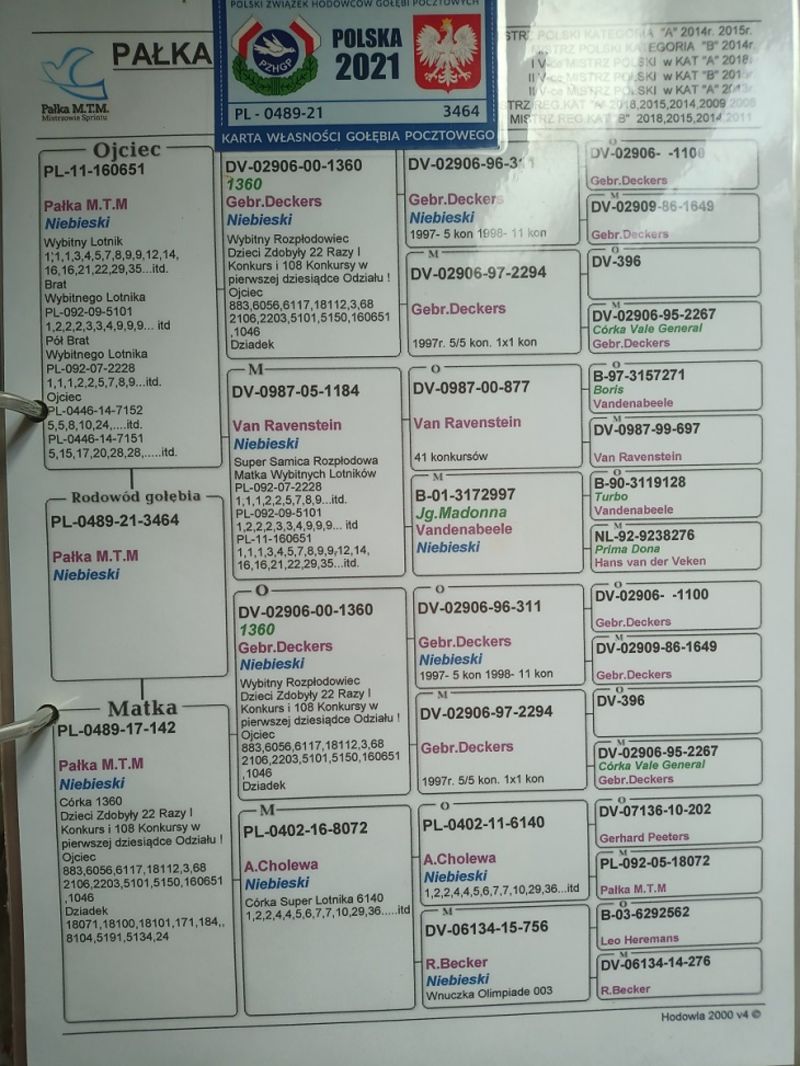 POLSKI ZWIĄZEK HODOWCÓW GOŁĘBI POCZTOWYCH
PZHGP
POLSKA
2021
PL - 0489-21 3464
KARTA WŁASNOŚCI GOŁĘBIA POCZTOWEGO
PAŁKA
Pałka M.T.M.
Mistrzowie Sprintu
MISTRZ POLSKI KATEGORIA "A" 2014r. 2015r.
MISTRZ POLSKI KATEGORIA "B" 2014r.
I V-ce MISTRZ POLSKI w KAT "A"
II V-ce MISTRZ POLSKI w KAT "B"
II V-ce MISTRZ POLSKI w KAT "A"
MISTRZ REG.KAT "A" 2018,2015,2014,2009
MISTRZ REG.KAT "B" 2018,2015,2014,2011
Ojciec
PL-11-160651
Pałka M.T.M
Niebieski
Wybitny Lotnik
1,1,1,3,4,5,7,8,9,9,12,14,
16,16,21,22,29,35...itd.
Brat
Wybitnego Lotnika
PL-092-09-5101
1,2,2,2,3,3,4,9,9,9... itd
Pół Brat
Wybitnego Lotnika
PL-092-07-2228
1,1,1,2,2,5,7,8,9...itd.
Ojciec
PL-0446-14-7152
5,5,8,10,24,....itd.
PL-0446-14-7151
5,15,17,20,28,28,.....itd.
Rodowód gołębia
PL-0489-21-3464
Pałka M.T.M
Niebieski
Matka
PL-0489-17-142
Pałka M.T.M
Niebieski
Córka 1360
Dzieci Zdobyły 22 Razy I
Konkurs i 108 Konkursy w
pierwszej dziesiądce Odziału !
Ojciec
883,6056,6117,18112,3,68
2106,2203,5101,5150,160651
,1046
Dziadek
18071,18100,18101,171,184,,
8104,5191,5134,24
DV-02906-00-1360
1360
Gebr.Deckers
Niebieski
Wybitny Rozpłodowiec
Dzieci Zdobyły 22 Razy I
Konkurs i 108 Konkursy w
pierwszej dziesiądce Odziału !
Ojciec
883,6056,6117,18112,3,68
2106,2203,5101,5150,160651
,1046
Dziadek
M
DV-0987-05-1184
Van Ravenstein
Niebieski
Super Samica Rozpłodowa
Matka Wybitnych Lotników
PL-092-07-2228
1,1,1,2,2,5,7,8,9...itd.
PL-092-09-5101
1,2,2,2,3,3,4,9,9,9... itd
PL-11-160651
1,1,1,3,4,5,7,8,9,9,12,14,
16,16,21,22,29,35...itd.
O
DV-02906-00-1360
1360
Gebr.Deckers
Niebieski
Wybitny Rozpłodowiec
Dzieci Zdobyły 22 Razy I
Konkurs i 108 Konkursy w
pierwszej dziesiądce Odziału !
Ojciec
883,6056,6117,18112,3,68
2106,2203,5101,5150,160651
,1046
Dziadek
M
PL-0402-16-8072
A.Cholewa
Niebieski
Córka Super Lotnika 6140
1,2,2,4,4,5,6,7,7,10,29,36.....itd
DV-02906-96-311
Gebr.Deckers
Niebieski
1997- 5 kon 1998- 11 kon
M
DV-02906-97-2294
Gebr.Deckers
1997r. 5/5 kon. 1x1 kon
O
DV-0987-00-877
Van Ravenstein
41 konkursów
M
B-01-3172997
Jg.Madonna
Vandenabeele
Niebieski
O
DV-02906-96-311
Gebr.Deckers
Niebieski
1997- 5 kon 1998- 11 kon
M
DV-02906-97-2294
Gebr.Deckers
1997r. 5/5 kon. 1x1 kon
O
PL-0402-11-6140
A.Cholewa
Niebieski
1,2,2,4,4,5,6,7,7,10,29,36...itd
M
DV-06134-15-756
R.Becker
Niebieski
Wnuczka Olimpiade 003
O
DV-02906- -1100
Gebr.Deckers
M
DV-02909-86-1649
Gebr.Deckers
O
DV-396
M
DV-02906-95-2267
Córka Vale General
Gebr.Deckers
O
B-97-3157271
Boris
Vandenabeele
M
DV-0987-99-697
Van Ravenstein
O
B-90-3119128
Turbo
Vandenabeele
M
NL-92-9238276
Prima Dona
Hans van der Veken
O
DV-02906- -1100
Gebr.Deckers
M
DV-02909-86-1649
Gebr.Deckers
O
DV-396
M
DV-02906-95-2267
Córka Vale General
Gebr.Deckers
O
DV-07136-10-202
Gerhard Peeters
M
PL-092-05-18072
Pałka M.T.M
O
B-03-6292562
Leo Heremans
M
DV-06134-14-276
R.Becker
Hodowla 2000 v4 ©